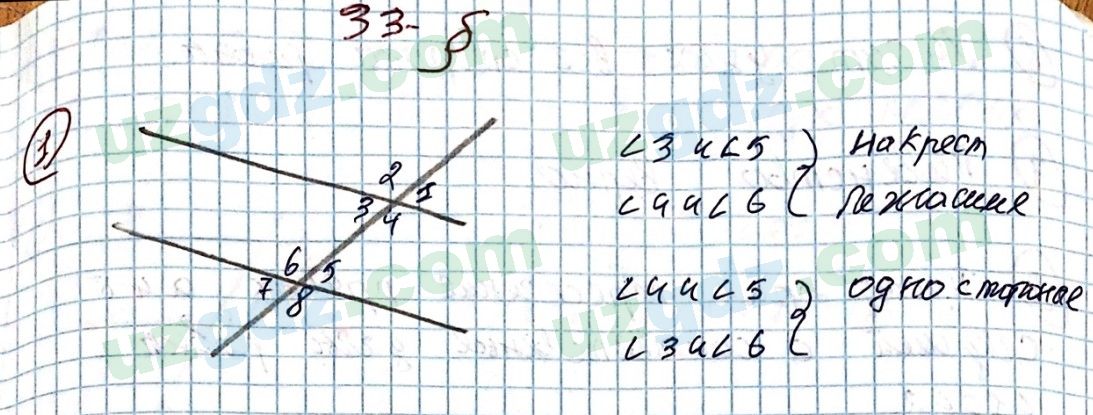 33-б
1
2
1
3
4
6
5
7
8
<3 и <5 } накрест
<4 и <6 лежащие
<4 и <5 } односторонние
<3 и <6
uzgdz.com
uzgdz.com
uzgdz.com
uzgdz.com